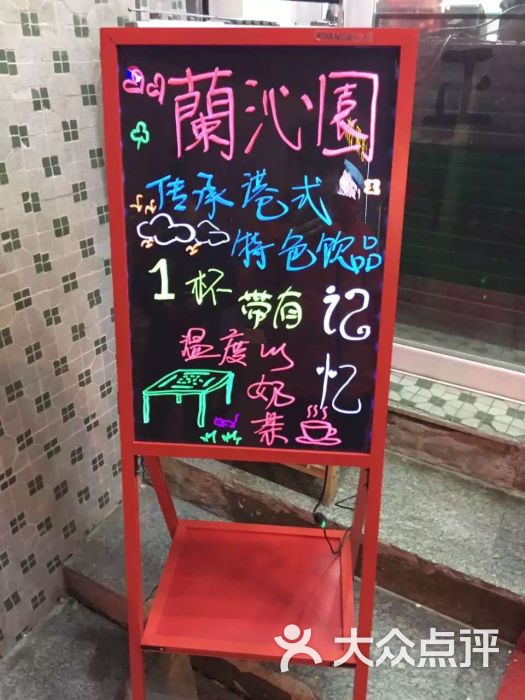 蘭沁園
传承港式
特色饮品
1杯带有记忆
温度以奶茶
大众点评